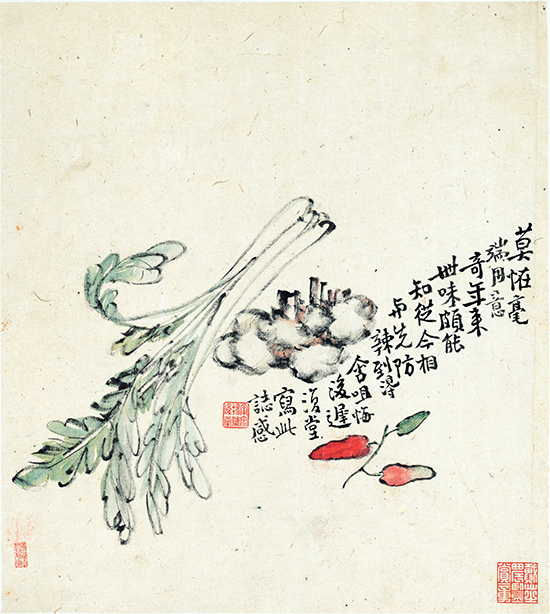 莫恠毫
端用意
奇年來
世味頗能
知從今相
与先防
辣到得
含咀悔
後遲
復堂
寫此
誌感